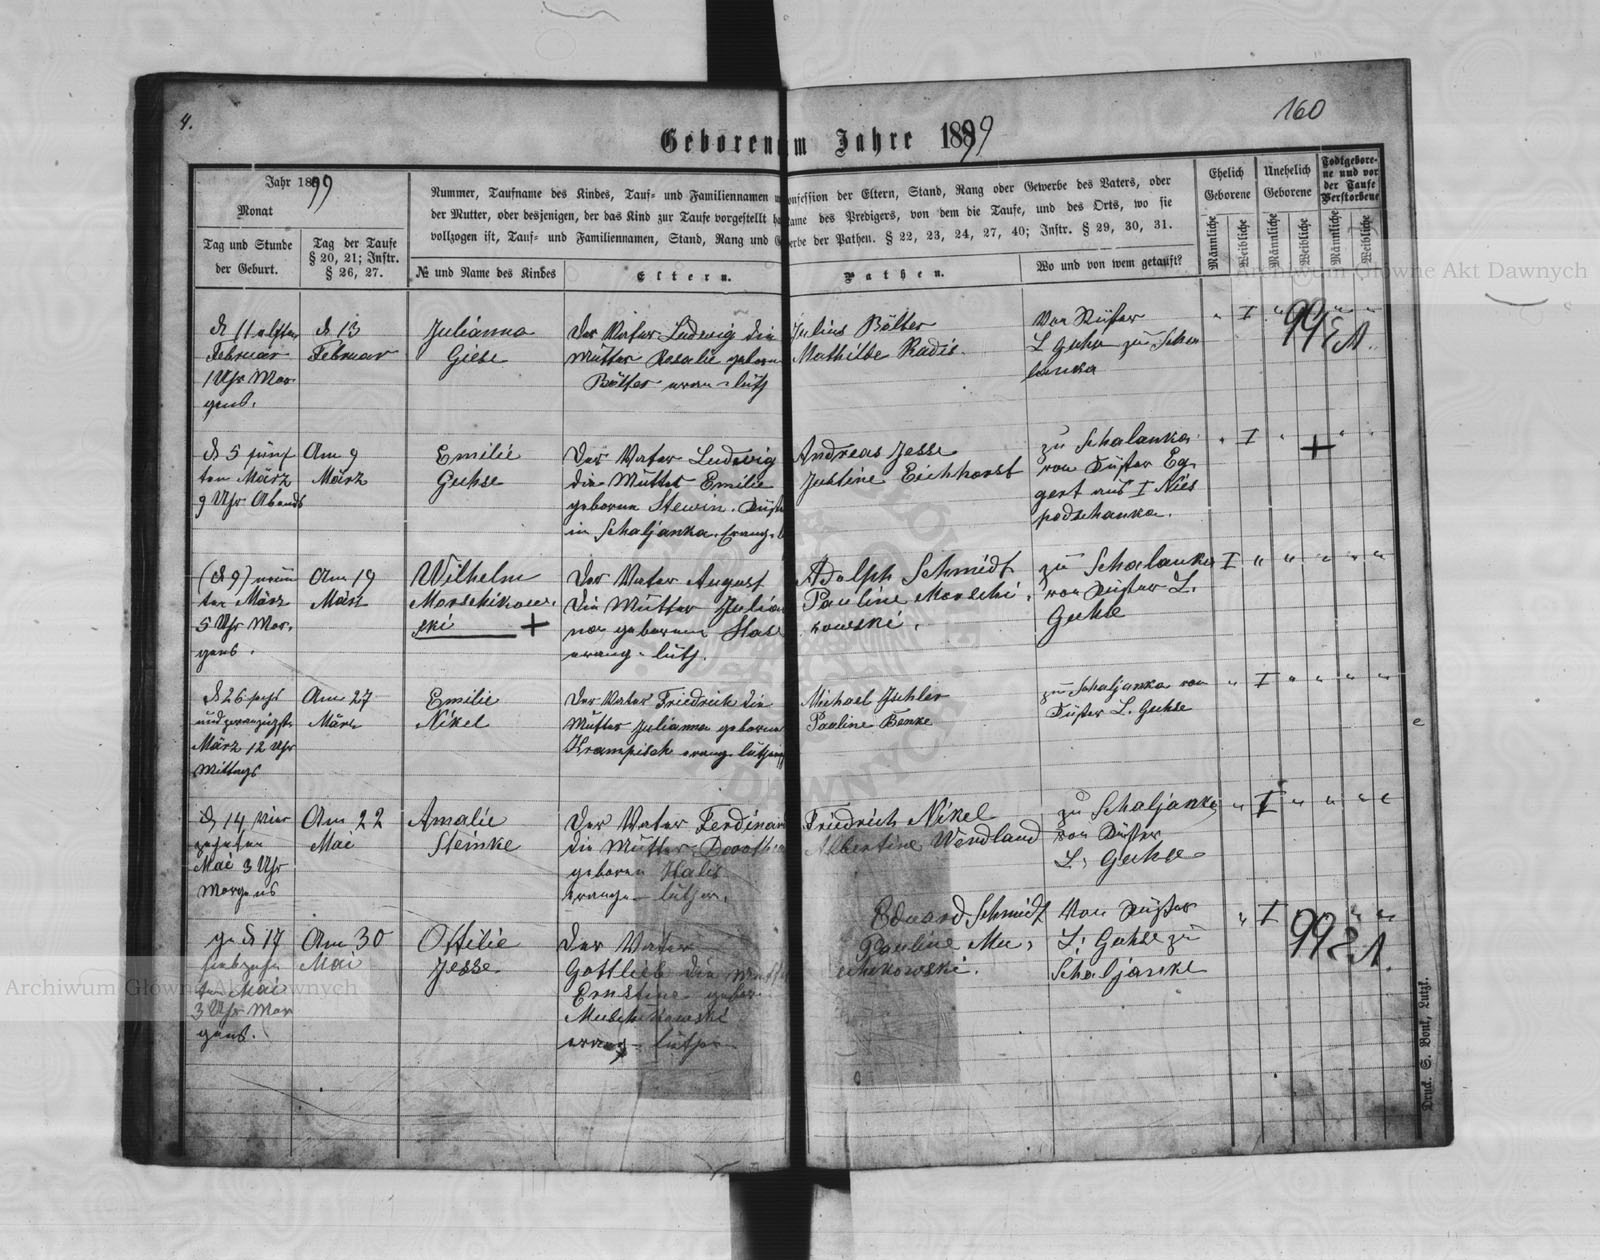 4.
160
Geboren im Jahre 1899
Jahr 1899
Monat
Tag und Stunde
der Geburt.
Tag der Taufe
§ 20, 21; Instr.
§ 26, 27.
Nummer, Taufname des Kindes, Tauf- und Familiennamen
Confession der Eltern, Stand, Rang oder Gewerbe des Vaters, oder
der Mutter, oder desjenigen, der das Kind zur Taufe vorgestellt
Name des Predigers, von dem die Taufe, und des Orts, wo sie
vollzogen ist, Tauf- und Familiennamen, Stand, Rang und Gewerbe der Pathen. § 22, 23, 24, 27, 40; Instr. § 29, 30, 31.
№ und Name des Kindes
Eltern.
Pathen.
Wo und von wem getauft?
Ehelich
Geborene
Unehelich
Geborene
Todtgebore-
ne und vor
der Taufe
Verstorbene
Männliche
Weibliche
Männliche
Weibliche
Männliche
Weibliche
d 11 elften
Februar
1 Uhr Mor-
gens.
d 13
Februar
Julianna
Giese
Der Vater Ludwig die
Mutter Rosalie geborne
Bölter evan-luth
Julius Bölter
Mathilde Radis.
Von Küster
L Guhse zu Scha
lanka
" I "
99
d 5 fünf
ten März
9 Uhr Abends
Am 9
März
Emilie
Guhse
Der Vater Ludwig
die Mutter Emilie
geborne Stewin. Küster
in Schaljanka. Evang.
Andreas Jesse
Justine Eichhorst
zu Schalanka
von Küster Eg
gert aus I Nies
podschanka.
" I " + " "
(d 9) neun
ten März
5 Uhr Mor-
gens.
Am 19
März
Wilhelm
Morschikow-
ski +
Der Vater August
die Mutter Julian
na geborene Hase
evang-luth.
Adolph Schmidt
Pauline Morschi-
kowski.
zu Schalanka
von Küster L.
Guhse
I " " " " "
d 26 sechs
und zwanzigste
März 12 Uhr
Mittags
Am 27
März
Emilie
Nikel
Der Vater Friedrich die
Mutter Julianna geborene
Krampisch evang-luther
Michael Jschler
Pauline Benke
zu Schaljanka von
Küster L. Guhse
" I " " " "
d 14 vier
zehnten
Mai 3 Uhr
Morgens
Am 22
Mai
Amalie
Steinke
Der Vater Ferdinand
die Mutter Dorothea
geboren Halis
evange-luther.
Friedrich Nikel
Albertine Wendland
zu Schaljanka
von Küster
L. Guhse
" I " " " "
d 17
siebzehn
ten Mai
3 Uhr Mor
gens.
Am 30
Mai
Ottilie
Jesse
Der Vater
Gottlieb die Mutter
Ernstine gebor.
Muschikowski
evang-luther
Eduard Schmidt
Pauline Mu-
schikowski.
Von Küster
L. Guhse zu
Schaljanke
" I
99
Druck. S. Bonk, Lutzk.
Archiwum Główne Akt Dawnych
Archiwum Główne Akt Dawnych